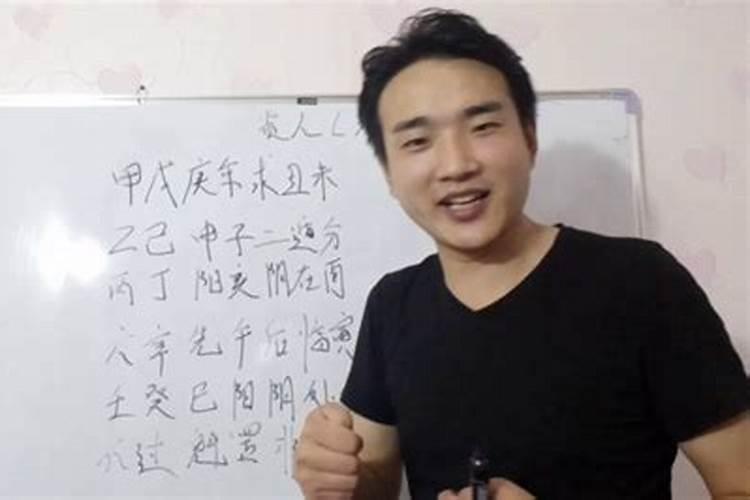 贵人
甲戊庚年求丑未
乙己申子二边分
丙丁 阳亥 阴在酉
六辛先午后临寅
壬癸巳阳阴卯
过魁罡